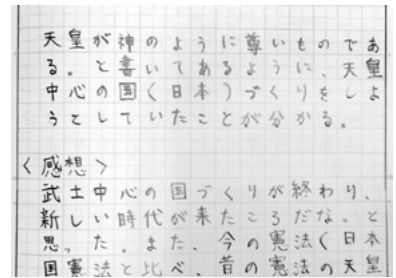 天皇が神のように尊いものであ
る。と書いてあるように、天皇
中心の国(日本)づくりをしよ
うとしていたことが分かる。
<感想>
武士中心の国づくりが終わり、
新しい時代が来たころだな。と
思った。また、今の憲法(日本
国憲法と比べ、昔の憲法の天皇